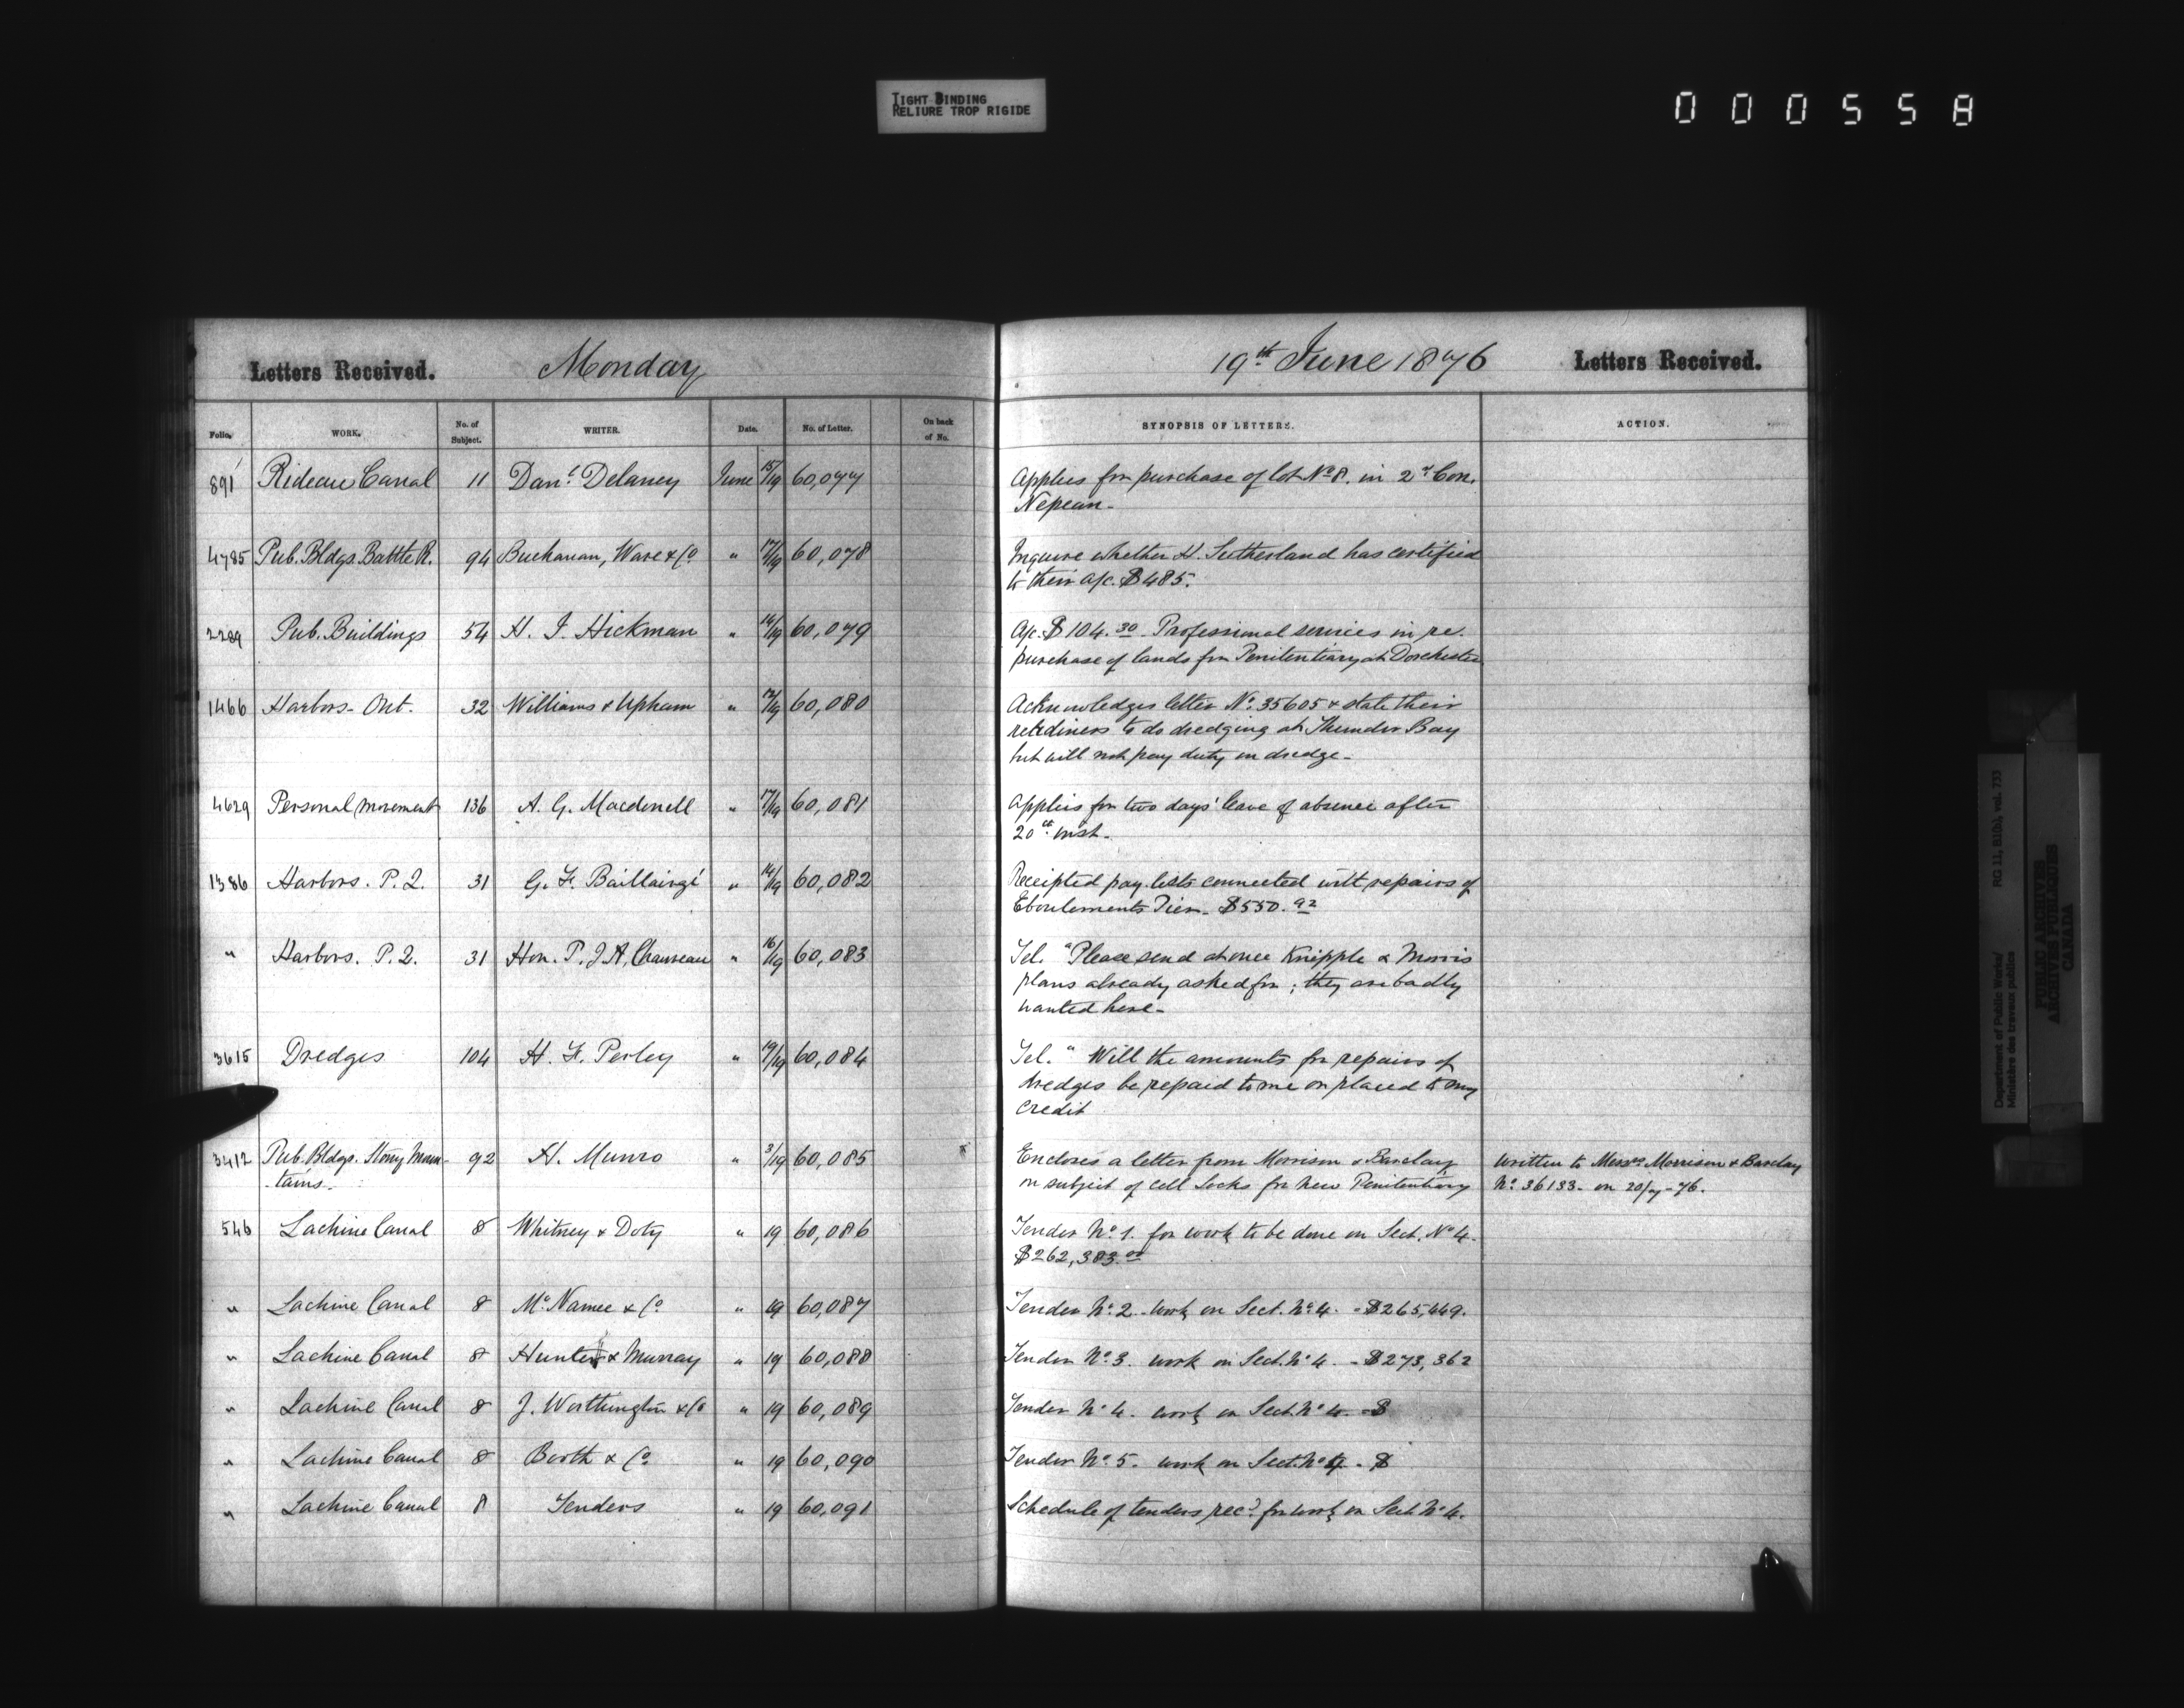 TIGHT BINDING
RELIURE TROP RIGIDE
000558
Letters Received. Monday
19th June 1876 Letters Received.
Folio. WORK. No. of Subject. WRITER. Date. No. of Letter. On back of No.
SYNOPSIS OF LETTERS. ACTION.
891 Rideau Canal 11 Danl. Delaney June 15/19 60,077 Applies for purchase of lot No 8. in 2d Con.
Nepean-
4785 Pub. Bldgs. Battle R. 94 Buchanan, Ware & Co. " 17/19 60,078 Inquire whether H. Sutherland has certified
to their a/c. $485.
2289 Pub. Buildings 54 H. J. Hickman " 14/19 60,079 A/c. $104.30 Professional services in re.
purchase of lands for Penitentiary at Dorchester
1466 Harbors- Ont. 32 Williams & Upham " 12/19 60,080 Acknowledges letter No. 35605 & state their
to do dredging at Thunder Bay
but will not pay duty on dredge-
4629 Personal movement 136 A. G. Macdonell " 17/19 60,081 Applies for two days' leave of absence after
20th inst-
1386 Harbors. P. Q. 31 G. F. Baillairgé " 14/19 60,082 Receipted pay lists connected with repairs of
Eboulements Pier- $550.92
" Harbors. P. Q. 31 Hon. P. J. A. Chauveau " 16/19 60,083 Tel. "Please send at once Knipple & Morris
plans already asked for; they are badly
wanted here-
3615 Dredges 104 H. F. Perley " 19/19 60,084 Tel. " Will the amounts for repairs of
dredges be repaid to me or placed to my
credit
3412 Pub. Bldgs. Stony Moun- 92 H. Munro " 3/19 60,085 Encloses a letter from Morrison & Barclay written to Messrs Morrison & Barclay
-tains- on subject of cell locks for new Penitentiary No. 36133- on 20/7-76.
546 Lachine Canal 8 Whitney & Doty " 19 60,086 Tender No. 1. for work to be done on Sect. No 4-
$262,383.00
" Lachine Canal 8 McNamee & Co " 19 60,087 Tender No. 2 work on Sect. No. 4. - $265,449.
" Lachine Canal 8 Hunter & Murray " 19 60,088 Tender No. 3. work on Sect. No 4. - $273,362
" Lachine Canal 8 J. Worthington & Co " 19 60,089 Tender No 4. work on Sect. No 4. - $
" Lachine Canal 8 Booth & Co. " 19 60,090 Tender No. 5. work on Sect. No 4 - $
" Lachine Canal 8 Tenders " 19 60,091 Schedule of tenders recd. for work on Sect. No 4.
Department of Public Works/
Ministère des travaux publics
RG 11, B1(b), vol. 733
PUBLIC ARCHIVES
ARCHIVES PUBLIQUES
CANADA